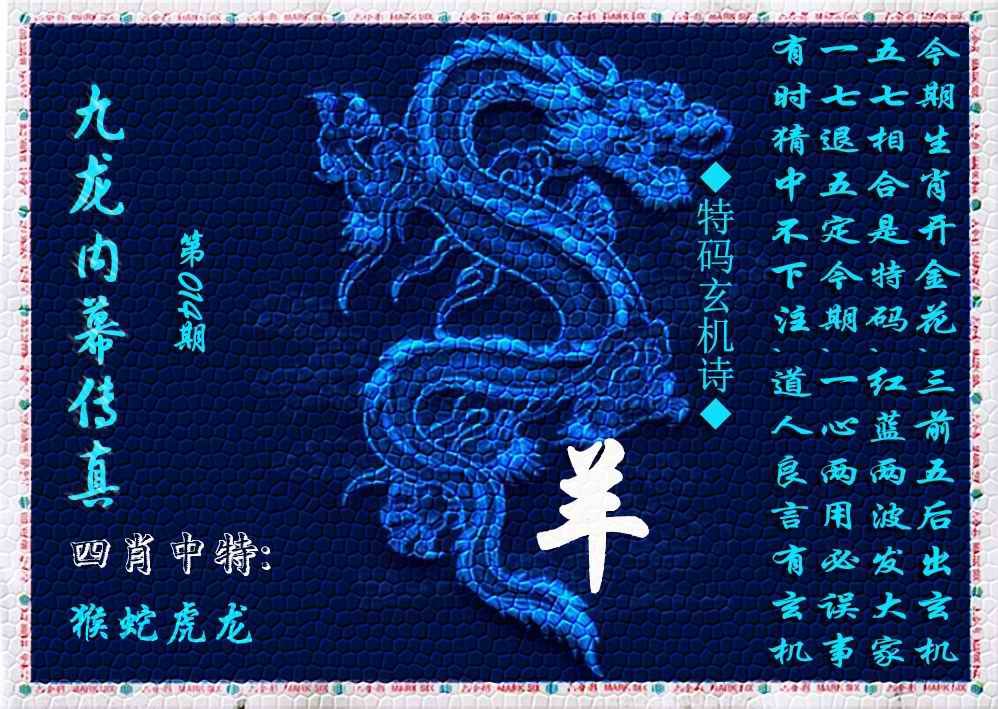 今期生肖开金花、三前五后出玄机
五七相合是特码、红蓝两波发大家
一七退五定今期、一心两用必误事
有时猜中不下注、道人良言有玄机
◆特码玄机诗◆
羊
第014期
九龙内幕传真
四肖中特:
猴蛇虎龙